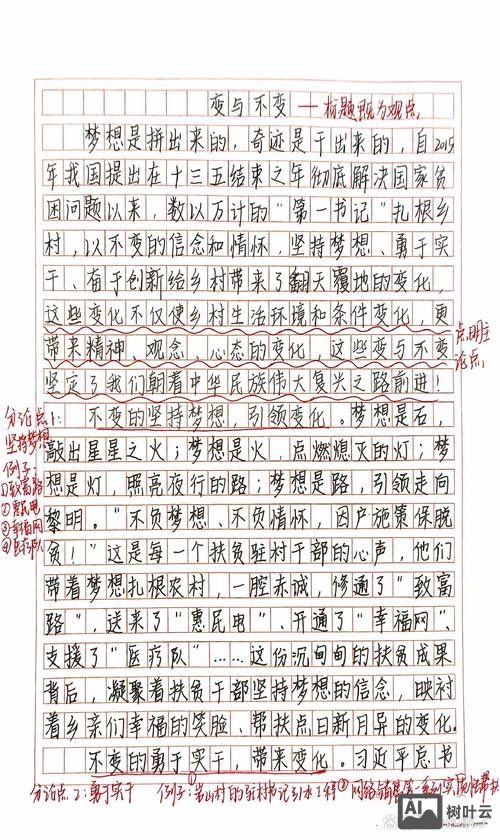 变与不变 — 标题既为观点.
梦想是拼出来的，奇迹是干出来的，自2015
年我国提出在十三五结束之年彻底解决国家贫
困问题以来，数以万计的“第一书记”扎根乡
村，以不变的信念和情怀，坚持梦想、勇于实
干、奋于创新给乡村带来了翻天覆地的变化，
这些变化不仅使乡村生活环境和条件变化，更
带来精神、观念、心态的变化，这些变与不变
点明主
论点.
坚定了我们朝着中华民族伟大复兴之路前进！
分论点1:
坚持梦想
例子:
①致富路
②惠民电
③幸福网
④医疗队
不变的坚持梦想，引领变化。梦想是石，
敲出星星之火；梦想是火，点燃熄灭的灯；梦
想是灯，照亮夜行的路；梦想是路，引领走向
黎明。“不负梦想、不负情怀，因户施策保脱
贫！”这是每一个扶贫驻村干部的心声，他们
带着梦想扎根农村，一腔赤诚，修通了“致富
路”，送来了“惠民电”、开通了“幸福网”、
支援了“医疗队”……这份沉甸甸的扶贫成果
背后，凝聚着扶贫干部坚持梦想的信念，映衬
着乡亲们幸福的笑脸、帮扶点日新月异的变化.
不变的勇于实干，带来变化。习近平总书
分论点2:勇于实干 例子:①
山村的驻村书记引水工程②网络销售
树叶云